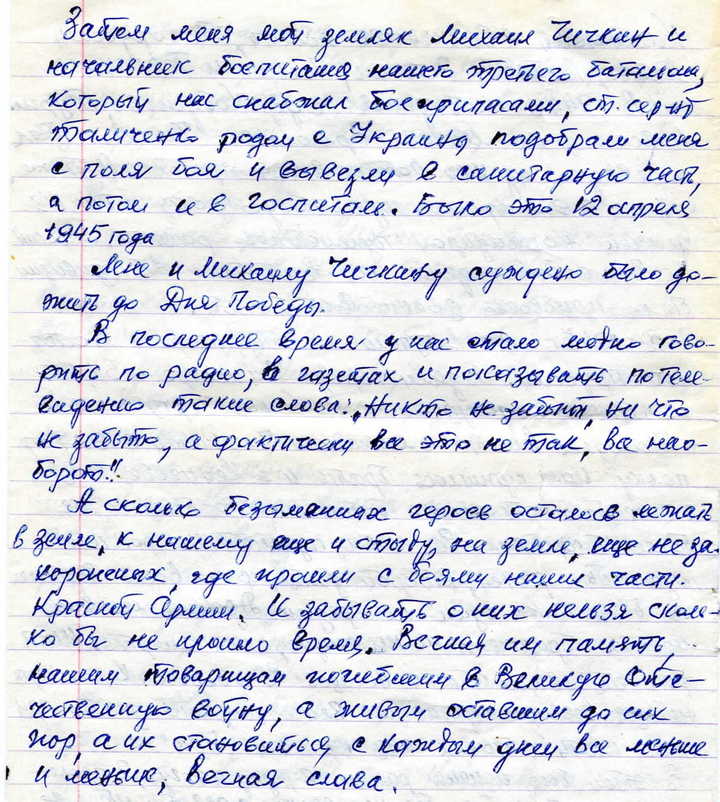 Затем меня мой земляк Михаил Чичкин и
начальник боепитания нашего третьего батальона,
который нас снабжал боеприпасами, ст. серж
Таличенко родом с Украины подобрали меня
с поля боя и вывезли в санитарную часть,
а потом и в госпиталь. Было это 12 апреля
1945 года
Мне и Михаилу Чичкину суждено было до-
жить до Дня Победы.
В последнее время у нас стало модно гово-
рить по радио, в газетах и показывать по теле-
видению такие слова: „Никто не забыт, ни что
не забыто, а фактически все это не так, все нао-
борот"!
А сколько безыманных героев осталось лежать
в земле, к нашему еще и стыду, на земле, еще не за-
хороненых, где прошли с боями наши части.
Красной Армии. И забывать о них нельзя сколь-
ко бы не прошло время. Вечная им память,
нашим товарищам погибшим в Великую Оте-
чественную войну, а живым оставшим до сих
пор, а их становиться с каждым днем все меньше
и меньше, Вечная слава.